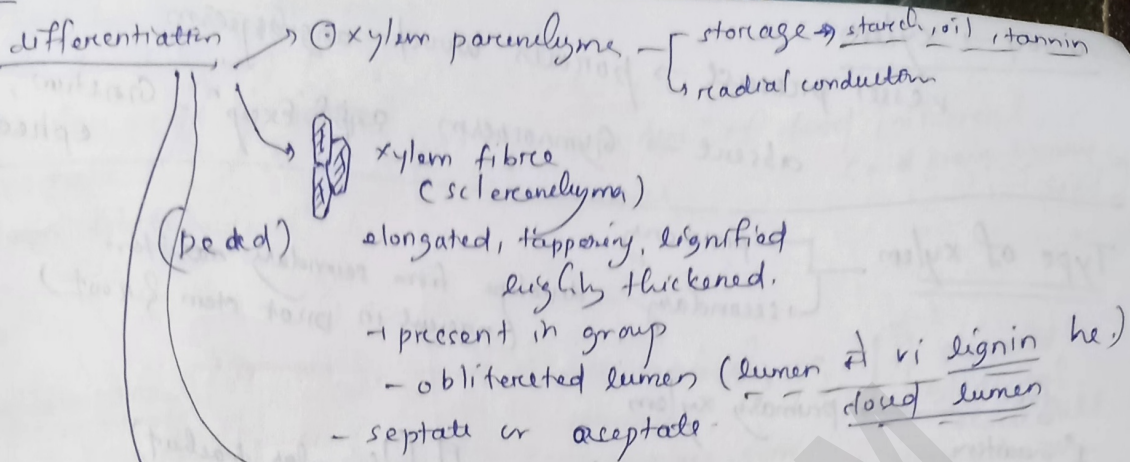 differentiation → ① xylem parenchyma - storage → starch, oil, tannin
radial conduction
xylem fibre
(sclerenchyma)
(Dead) elongated, tappering, lignified
highly thickened.
→ present in group
- obliterated lumen (lumen vi lignin he,)
lumen
- septate or aseptate